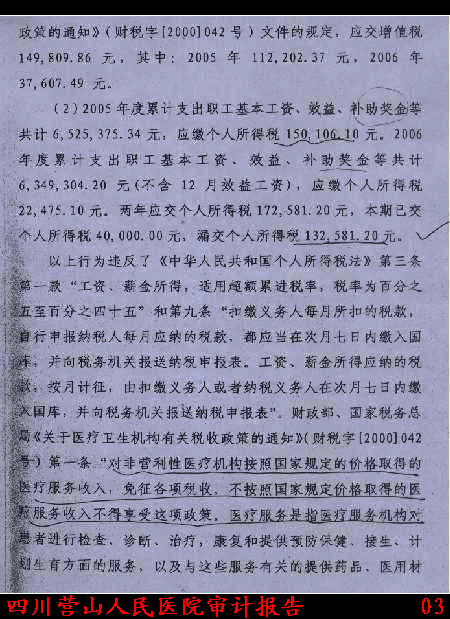 政策的通知》(财税字[2000]042号)文件的规定，应交增值税
149,809.86 元，其中：2005 年 112,202.37 元，2006 年
37,607.49 元。
(2)2005年度累计支出职工基本工资、效益、补助奖金等
共计 6,525,375.34 元，应缴个人所得税 150,106.10 元。2006
年度累计支出职工基本工资、效益、补助奖金等共计
6,349,304.20 元(不含 12 月效益工资)，应缴个人所得税
22,475.10 元。两年应交个人所得税 172,581.20 元，本期已交
个人所得税 40,000.00 元，漏交个人所得税 132,581.20 元。
以上行为违反了《中华人民共和国个人所得税法》第三条
第一款“工资、薪金所得，适用超额累进税率，税率为百分之
五至百分之四十五”和第九条“扣缴义务人每月所扣的税款，
自行申报纳税人每月应纳的税款，都应当在次月七日内缴入国
库，并向税务机关报送纳税申报表。工资、薪金所得应纳的税
款，按月计征，由扣缴义务人或者纳税义务人在次月七日内缴
入国库，并向税务机关报送纳税申报表”。财政部、国家税务总
局《关于医疗卫生机构有关税收政策的通知》(财税字[2000]042
号)第一条“对非营利性医疗机构按照国家规定的价格取得的
医疗服务收入，免征各项税收，不按照国家规定价格取得的医
疗服务收入不得享受这项政策，医疗服务是指医疗服务机构对
患者进行检查、诊断、治疗，康复和提供预防保健、接生、计
划生育方面的服务，以及与这些服务有关的提供药品、医用材
四川营山人民医院审计报告 03